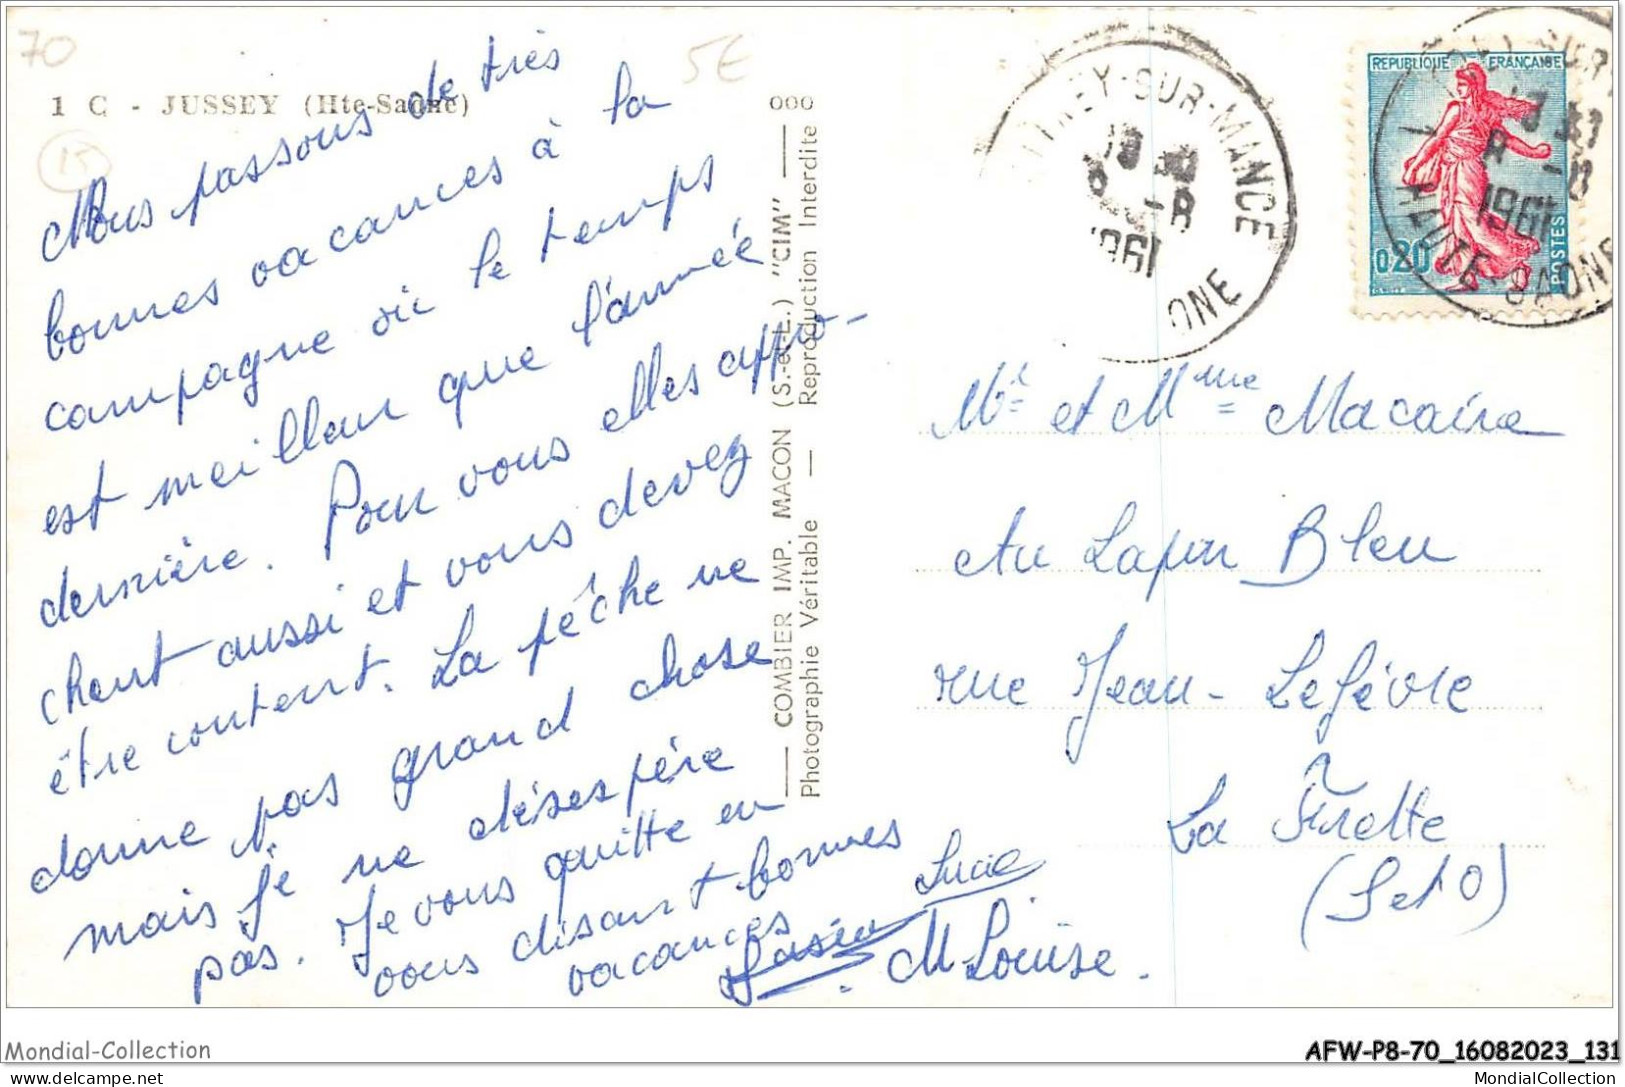 70
5E
1 C - JUSSEY (Hte-Saône)
15
Nous passons de très
bonnes vacances à la
campagne où le temps
est meilleur que l'année
dernière. Pour vous elles appro-
chent aussi et vous devez
être content. La pêche ne
donne pas grand chose
mais je ne désespère
pas. Je vous quitte en
vous disant bonnes
vacances
Lucie
M Louise.
000
COMBIER IMP. MACON (S.-et-L.) "CIM"
Photographie Véritable — Reproduction Interdite
-SUR-MANCE
-8
1961
REPUBLIQUE FRANÇAISE
0,20
POSTES
-8
1961
HAUTE-SAONE
Mr et Mme Macaire
Au Lapin Bleu
rue Jean-Lefèvre
La Frette
(S et O)
Mondial-Collection
AFW-P8-70_16082023_131
delcampe.net
MondialCollection